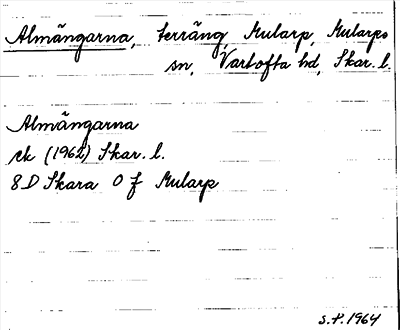 Almängarna, terräng, Mularp, Mularps
sn, Vartofta hd, Skar. l.
Almängarna
ek (1962) Skar. l.
8 D Skara 0 f Mularp
S.P. 1964